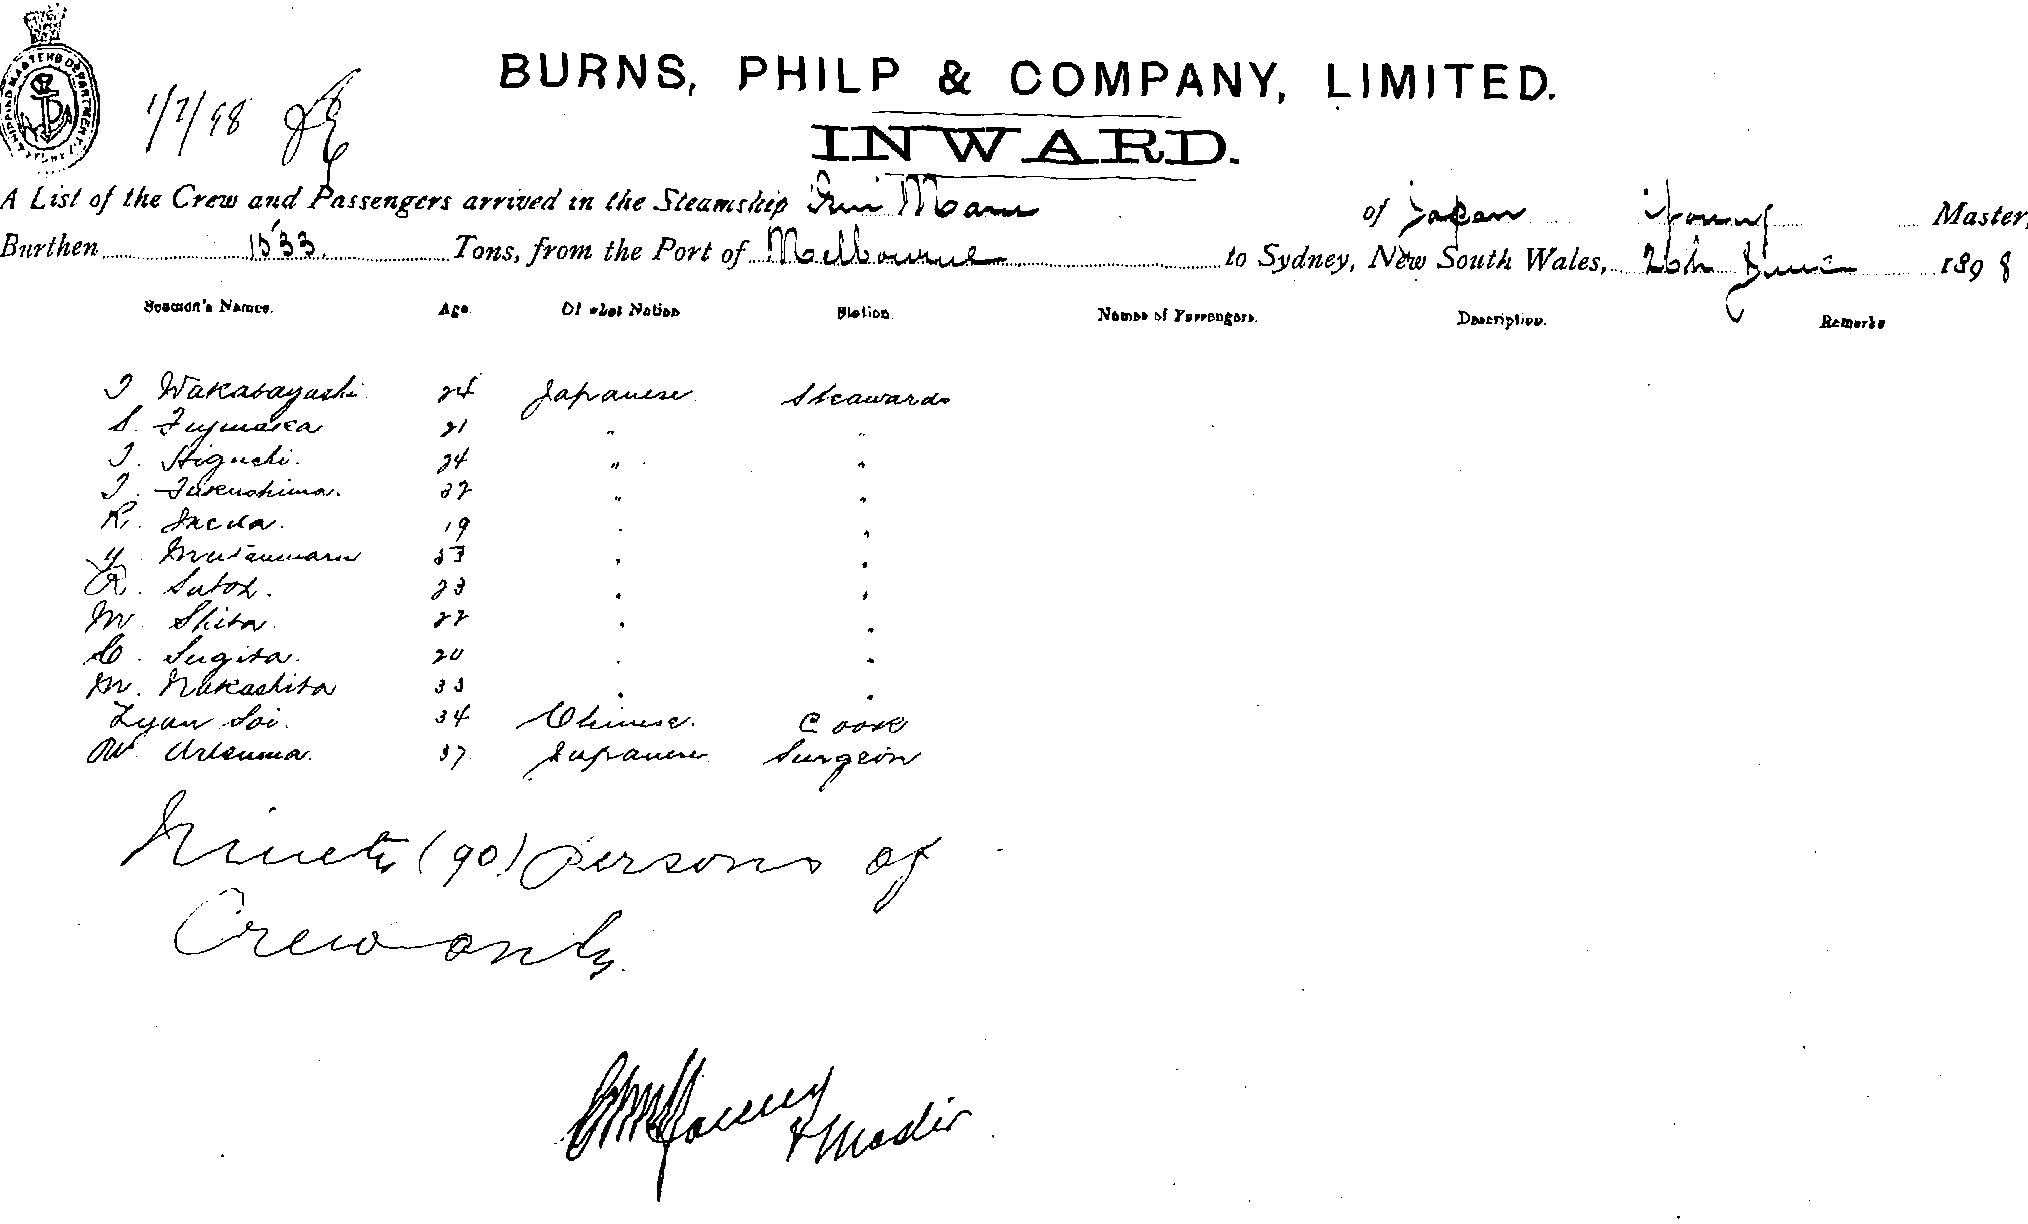 SHIPPING MASTERS DEPARTMENT
1/7/98
BURNS, PHILP & COMPANY, LIMITED.
INWARD.
A List of the Crew and Passengers arrived in the Steamship Maru of Japan Young Master,
Burthen 1533. Tons, from the Port of Melbourne to Sydney, New South Wales, June 1898
Seaman's Names. Age. Of what Nation Station Names of Passengers. Description. Remarks
Wakabayashi 24 Japanese Stewards
S. 21 " "
Higuchi. 24 " "
Fukushima. 32 " "
R. 19 " "
Y " "
R. Satoh. 23 " "
M Shita 22 " "
Sugita. 20 " "
M. Nakashita 33 " "
34 Chinese. Cook
37 Japanese Surgeon
Ninety (90) persons of
Crew only.
Young
Master